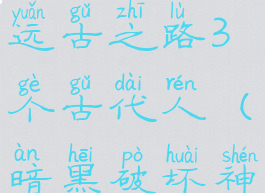 yuǎn gǔ zhī lù
远古之路3
gè gǔ dài rén
个古代人（
àn hēi pò huài shén
暗黑破坏神